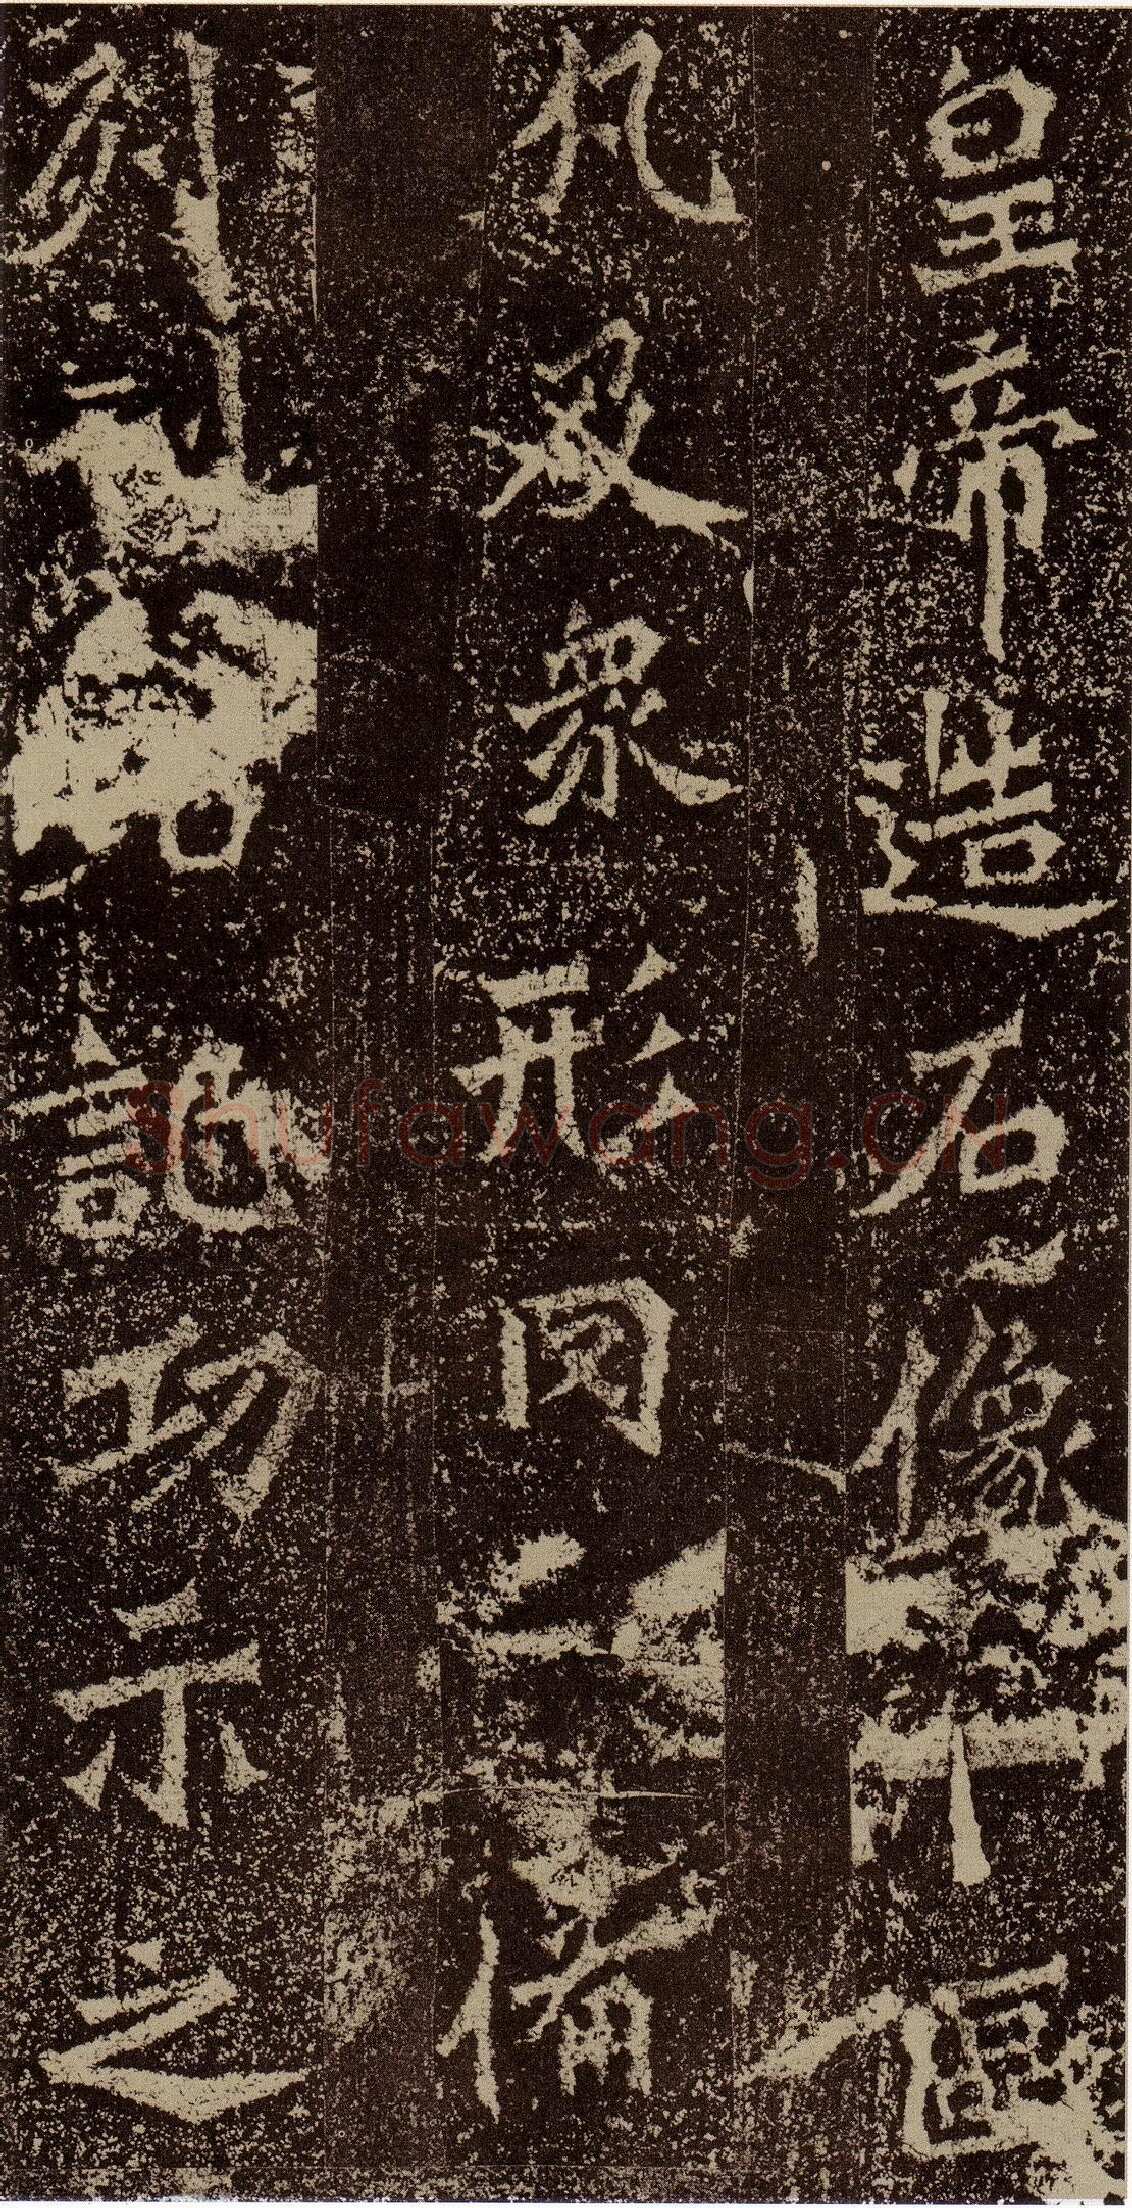 皇帝造石像區
凡及眾形罔備
列記功示之
Shufawang.CN